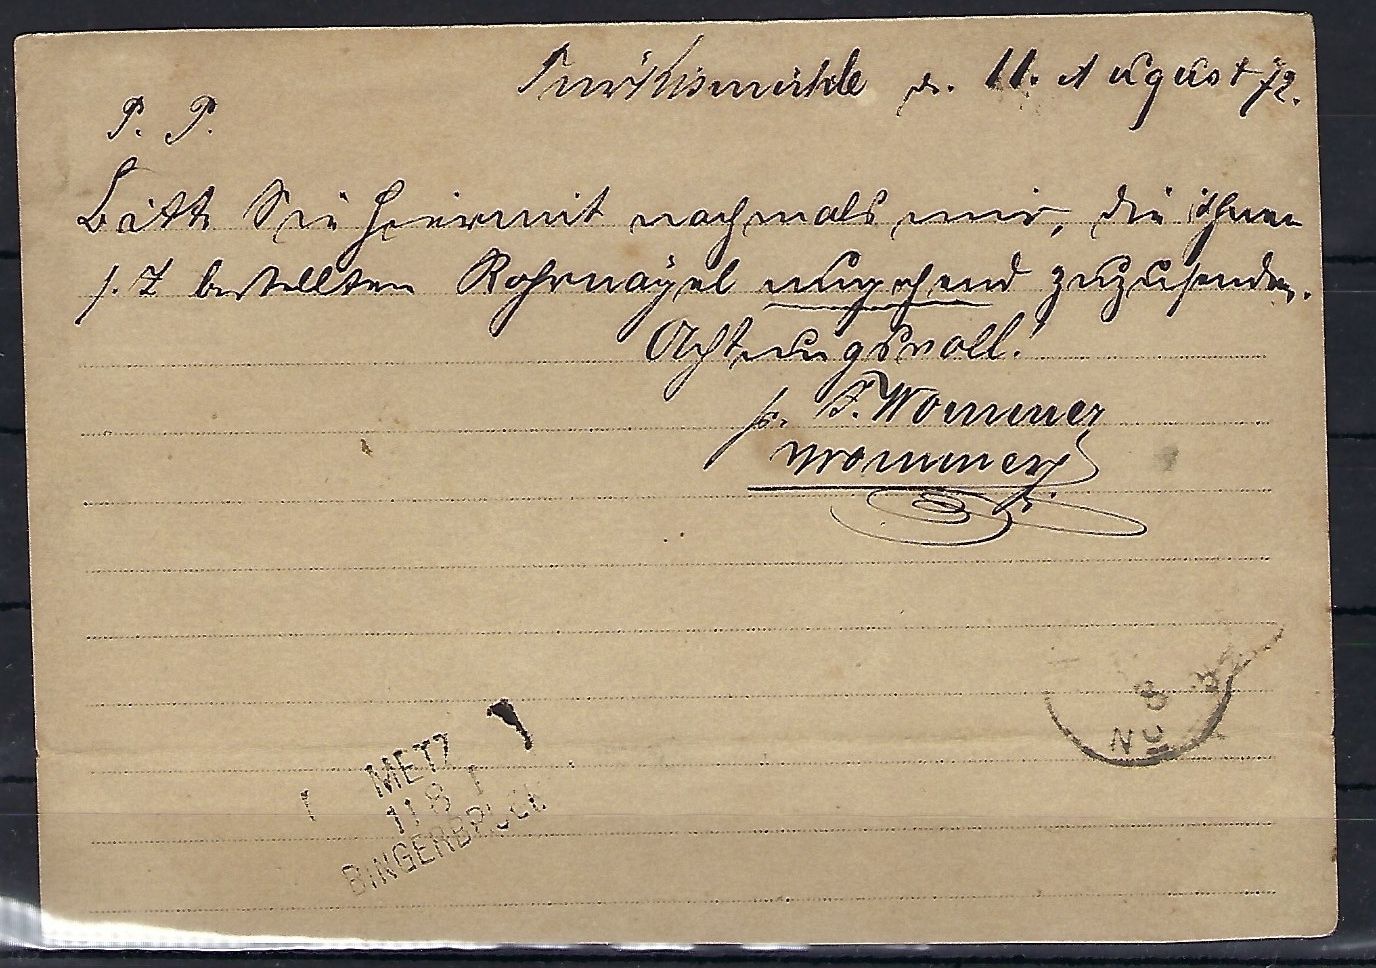 Türkismühle d. 11. August 72.
P. P.
Bitte Sie hiermit nochmals mir, die Ihnen
s. Z bestellten Rohrnägel umgehend zuzusenden.
Achtungsvoll!
pr. F. Wommer
Wommer
METZ
11 8 I
BINGERBRÜCK
8